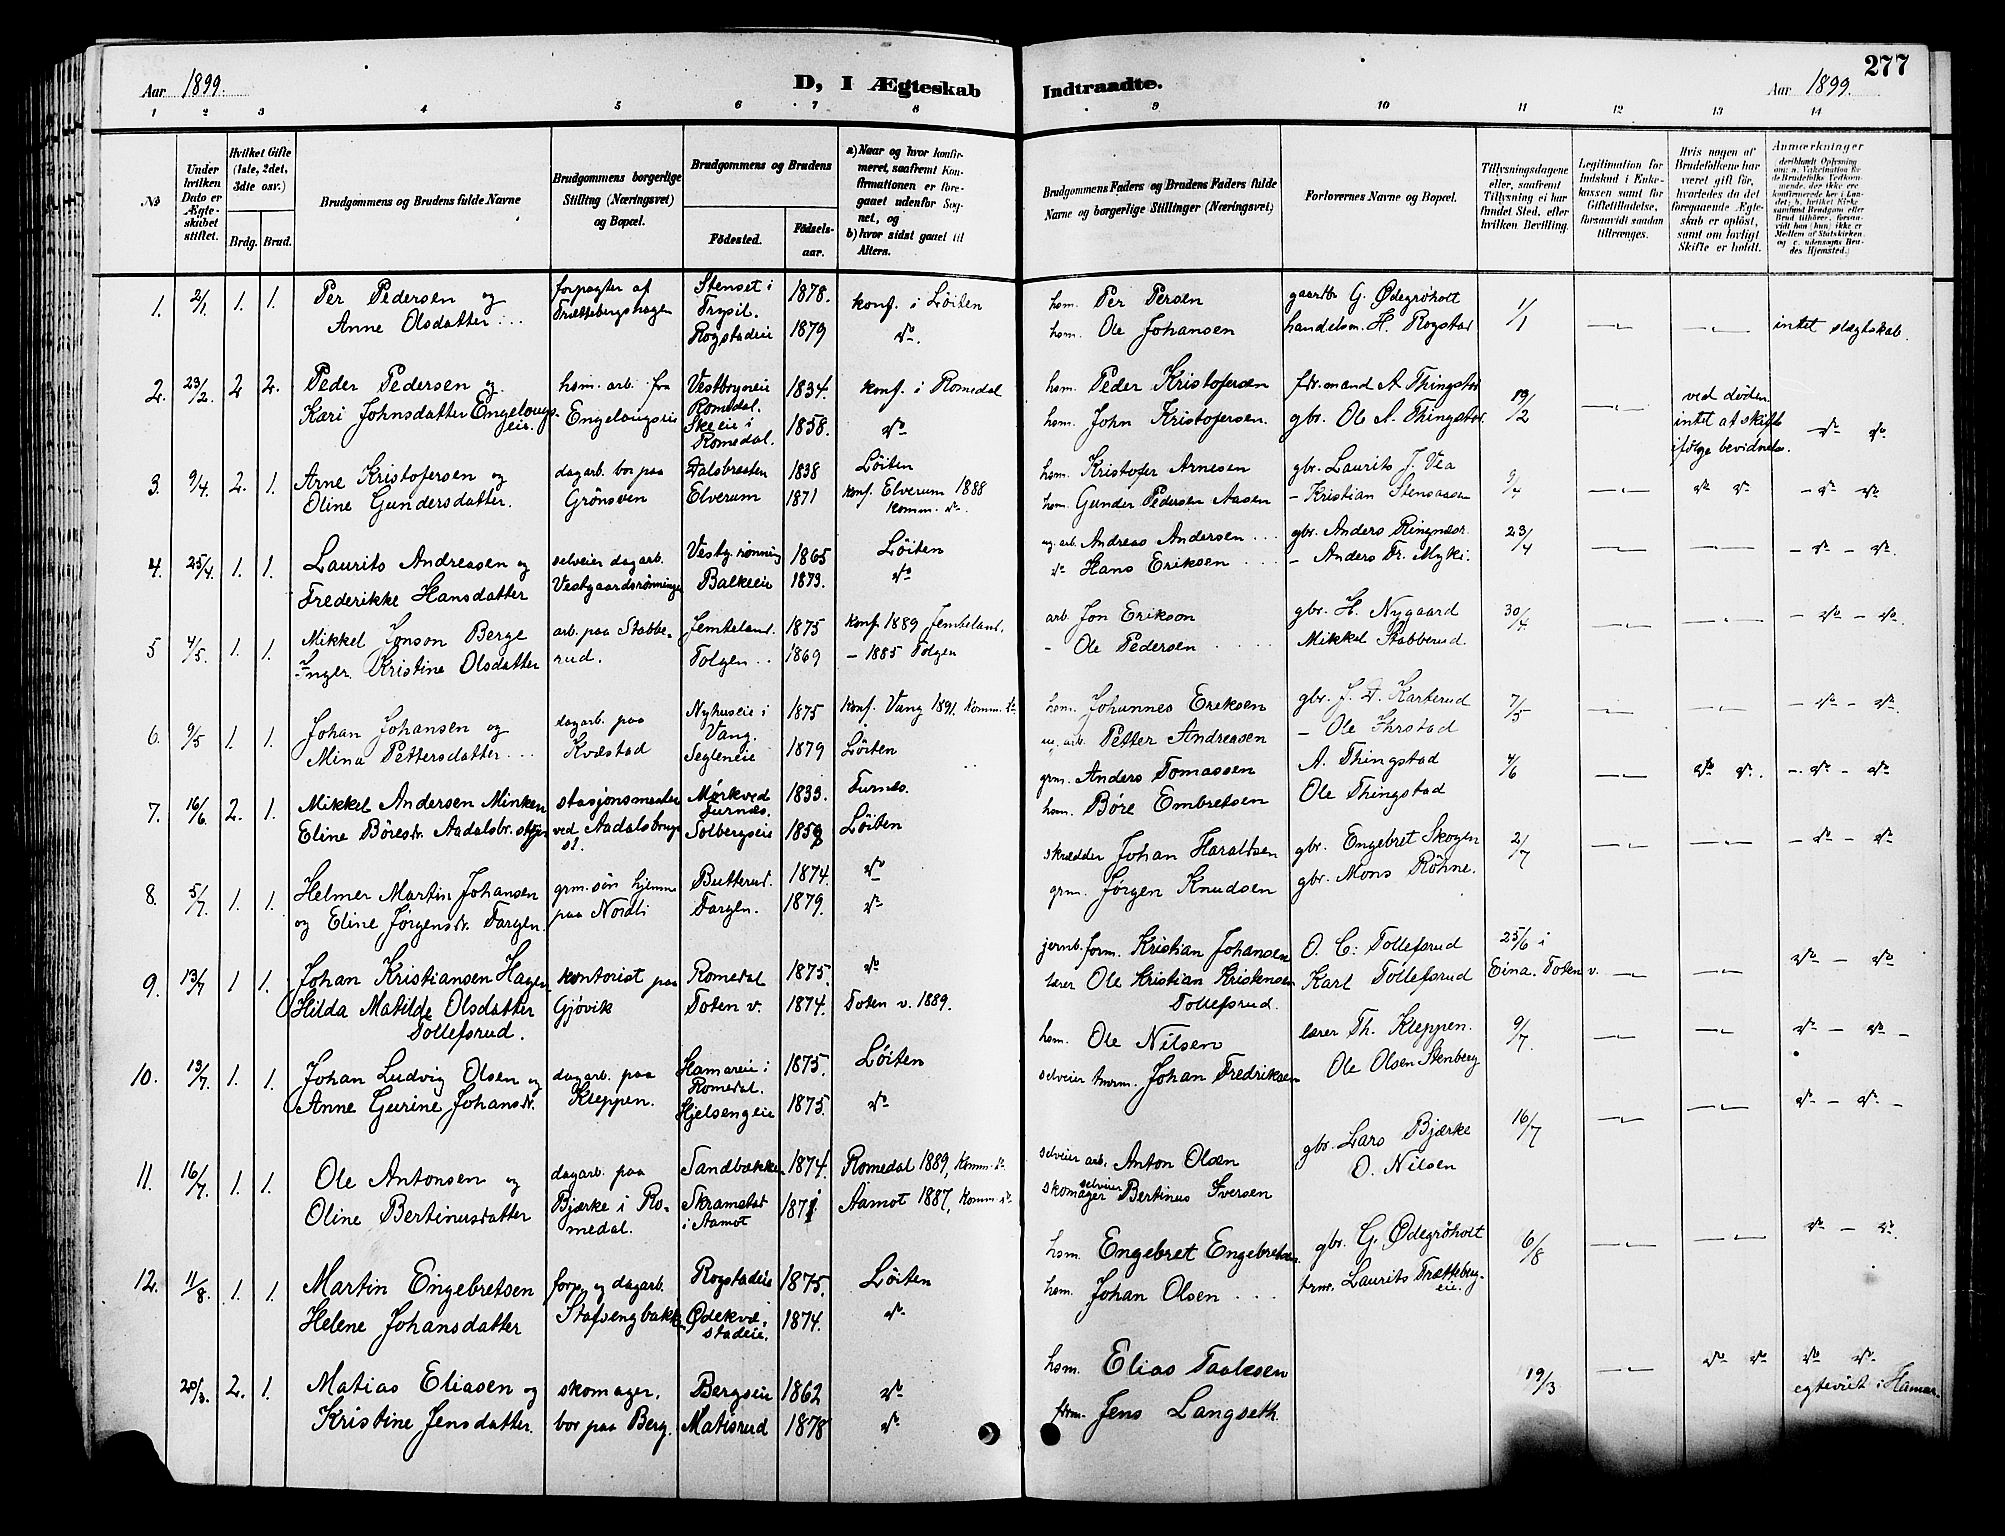 277
Aar 1899. D, I Ægteskab Indtraadte. Aar 1899.
1 2 3 4 5 6 7 8 9 10 11 12 13 14
No
Under hvilken Dato er Ægteskabet stiftet.
Hvilket Gifte (1ste, 2det, 3die osv.)
Brdg. Brud.
Brudgommens og Brudens fulde Navne
Brudgommens borgerlige Stilling (Næringsvei) og Bopæl.
Brudgommens og Brudens
Födested. Födsels-aar.
a) Naar og hvor konfirmeret, saafremt Konfirmationen er foregaaet udenfor Sognet, og
b) hvor sidst gaaet til Alters.
Brudgommens Faders og Brudens Faders fulde Navne og borgerlige Stillinger (Næringsvei)
Forlovernes Navne og Bopæl.
Tillysningsdagene eller, saafremt Tillysning ei har fundet Sted, efter hvilken Bevilling.
Legitimation for Indskud i Enkekassen samt for Giftetilladelse, forsaavidt saadan tiltrænges.
Hvis nogen af Brudefolkene har været gift før, hvorledes da det foregaaende Ægteskab er opløst, samt om lovligt Skifte er holdt.
Anmærkninger
1. 2/1 1. 1. Per Pedersen og forpagter af Stenset i 1878. konf. i Löiten hsm. Per Persen gaardbr. G. Ødegröholt 1/1 intet slægtskab.
Anne Olsdatter Trættebergshagen Trysil.
Rogstadeie 1879 do. hsm. Ole Johansen handelsm. H. Rogstad
2. 23/2 2 2. Peder Pedersen og hsm. arb. fra Vestbryneie 1834. konf. i Romedal hsm. Peder Kristofersen fdr.mand A. Thingstad 19/2 ved döden.
Kari Johnsdatter Engelaugs- Engelaugseie Romedal. intet at skifte
eie. Skeeie i 1858. do hsm. John Kristofersen. gbr. Ole A. Thingstad. ifölge bevidnelse. do do
Romedal.
3. 9/4. 2. 1. Arne Kristofersen og dagarb. bor paa Dalsbraaten 1838 Löiten hsm. Kristofer Arnesen gbr. Laurits J. Vea 9/4 do do do do
Oline Gundersdatter. Grönsven Elverum 1871 konf. Elverum 1888 hsm. Gunder Pedersen Aasen - Kristian Stensaasen
komm. do.
4. 25/4. 1. 1. Laurits Andreasen og selveier dagarb. Vestg. rönning 1865 Löiten ug. arb. Andreas Andersen gbr. Anders Ringnæs. 23/4 - do - do.
Frederikke Hansdatter Vestgaardsrönningen Balkeeie 1873. do do Hans Eriksen - Anders Fr. Myki.
5 4/5. 1. 1. Mikkel Jonson Berge arb. paa Stabbe- Jemteland. 1875 konf. 1889 Jemteland. arb. Jon Erikson gbr. H. Nygaard 30/4 - do - do.
Inger Kristine Olsdatter rud. Tolgen 1869 - 1885 Tolgen - Ole Pedersen Mikkel Stabberud
6. 9/5 1. 1. Johan Johansen og dagarb. paa Nyhuseie i 1875 konf. Vang 1891. komm. do hsm. Johannes Eriksen gbr. J. D. Karterud 7/5 - do - do.
Mina Pettersdatter Kvæstad Vang.
Segleneie 1879 Löiten ug. arb. Petter Andreasen - Ole Ihrstad
7. 16/6. 2. 1. Mikkel Andersen Minken stasjonsmester Mörkved 1833. Furnes. grm. Anders Tomassen A. Thingstad 4/6 do do. - do - do
Eline Böresdr. Aadalsbr. stasjon ved Aadalsbruge Furnæs.
st. Solbergseie 1859 Löiten hsm. Böre Embretsen Ole Thingstad
8. 5/7. 1. 1. Helmer Martin Johansen grm. sön hjemme Butterud. 1874. do skrædder Johan Haraldsen gbr. Engebret Skogen 2/7 do - do
og Eline Jörgensdr. Fargen. paa Nordli Fargen. 1879. do grm. Jörgen Knudsen gbr. Mons Röhne.
9. 13/7 1 1. Johan Kristiansen Hagen kontorist paa Romedal 1875. do jernb. form. Kristian Johansen O. C. Tollefsrud 25/6 i do - do
Hilda Matilde Olsdatter Gjövik Toten v. 1874. Toten v. 1889. lærer Ole Kristian Kristensen Karl Tollefsrud Eina. Toten v.
Tollefsrud. Tollefsrud.
10. 13/7. 1. 1. Johan Ludvig Olsen og dagarb. paa Hamareie i 1875. Löiten hsm. Ole Nilsen lærer Th. Kleppen. 9/7. do - do -
Anne Gurine Johansdr. Kleppen. Romedal.
Hjelsengeie 1875. do selveier tmrm. Johan Fredriksen Ole Olsen Stenberg
11. 16/7. 1. 1. Ole Antonsen og dagarb. paa Sandbakken 1874. Romedal 1889, komm. do. selveier arb. Anton Olsen gbr. Lars Bjærke 16/7 do - do -
Oline Bertinusdatter Bjærke i Ro- Skramstad 1871 Aamot 1887, komm. do. skomager selveier Bertinus Iversen O. Nilsen
medal. i Aamot
12. 11/8. 1. 1. Martin Engebretsen forp. og dagarb. Rogstadeie 1875. Löiten hsm. Engebret Engebretsen gbr. G. Ødegröholt 6/8 do - do.
Helene Johansdatter Stafsengbakken Ødekvæ- 1874. do hsm. Johan Olsen trm. Laurits Trætteberg-
stadeie. eie.
20/3. 2. 1. Matias Eliasen og skomager, Bergseie 1862 do hsm. Elias Taalesen 19/3 do do do do
Kristine Jensdatter. bor paa Berg. Matisrud 1878 do. fdrm. Jens Langseth. egteviet i Hamar.